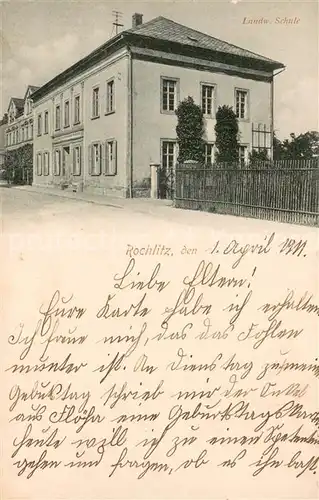 Landw. Schule
Rochlitz, den 1. April 1911.
Liebe Eltern!
Eure Karte habe ich erhalten
Ich freue mich, das das Fohlen
munter ist. An Dienstag zu mein
Gebustag schrieb mir der Onkel
aus Flöha eine Geburtstagskarte
heute will ich zu einen
gehen und fragen, ob es ihn